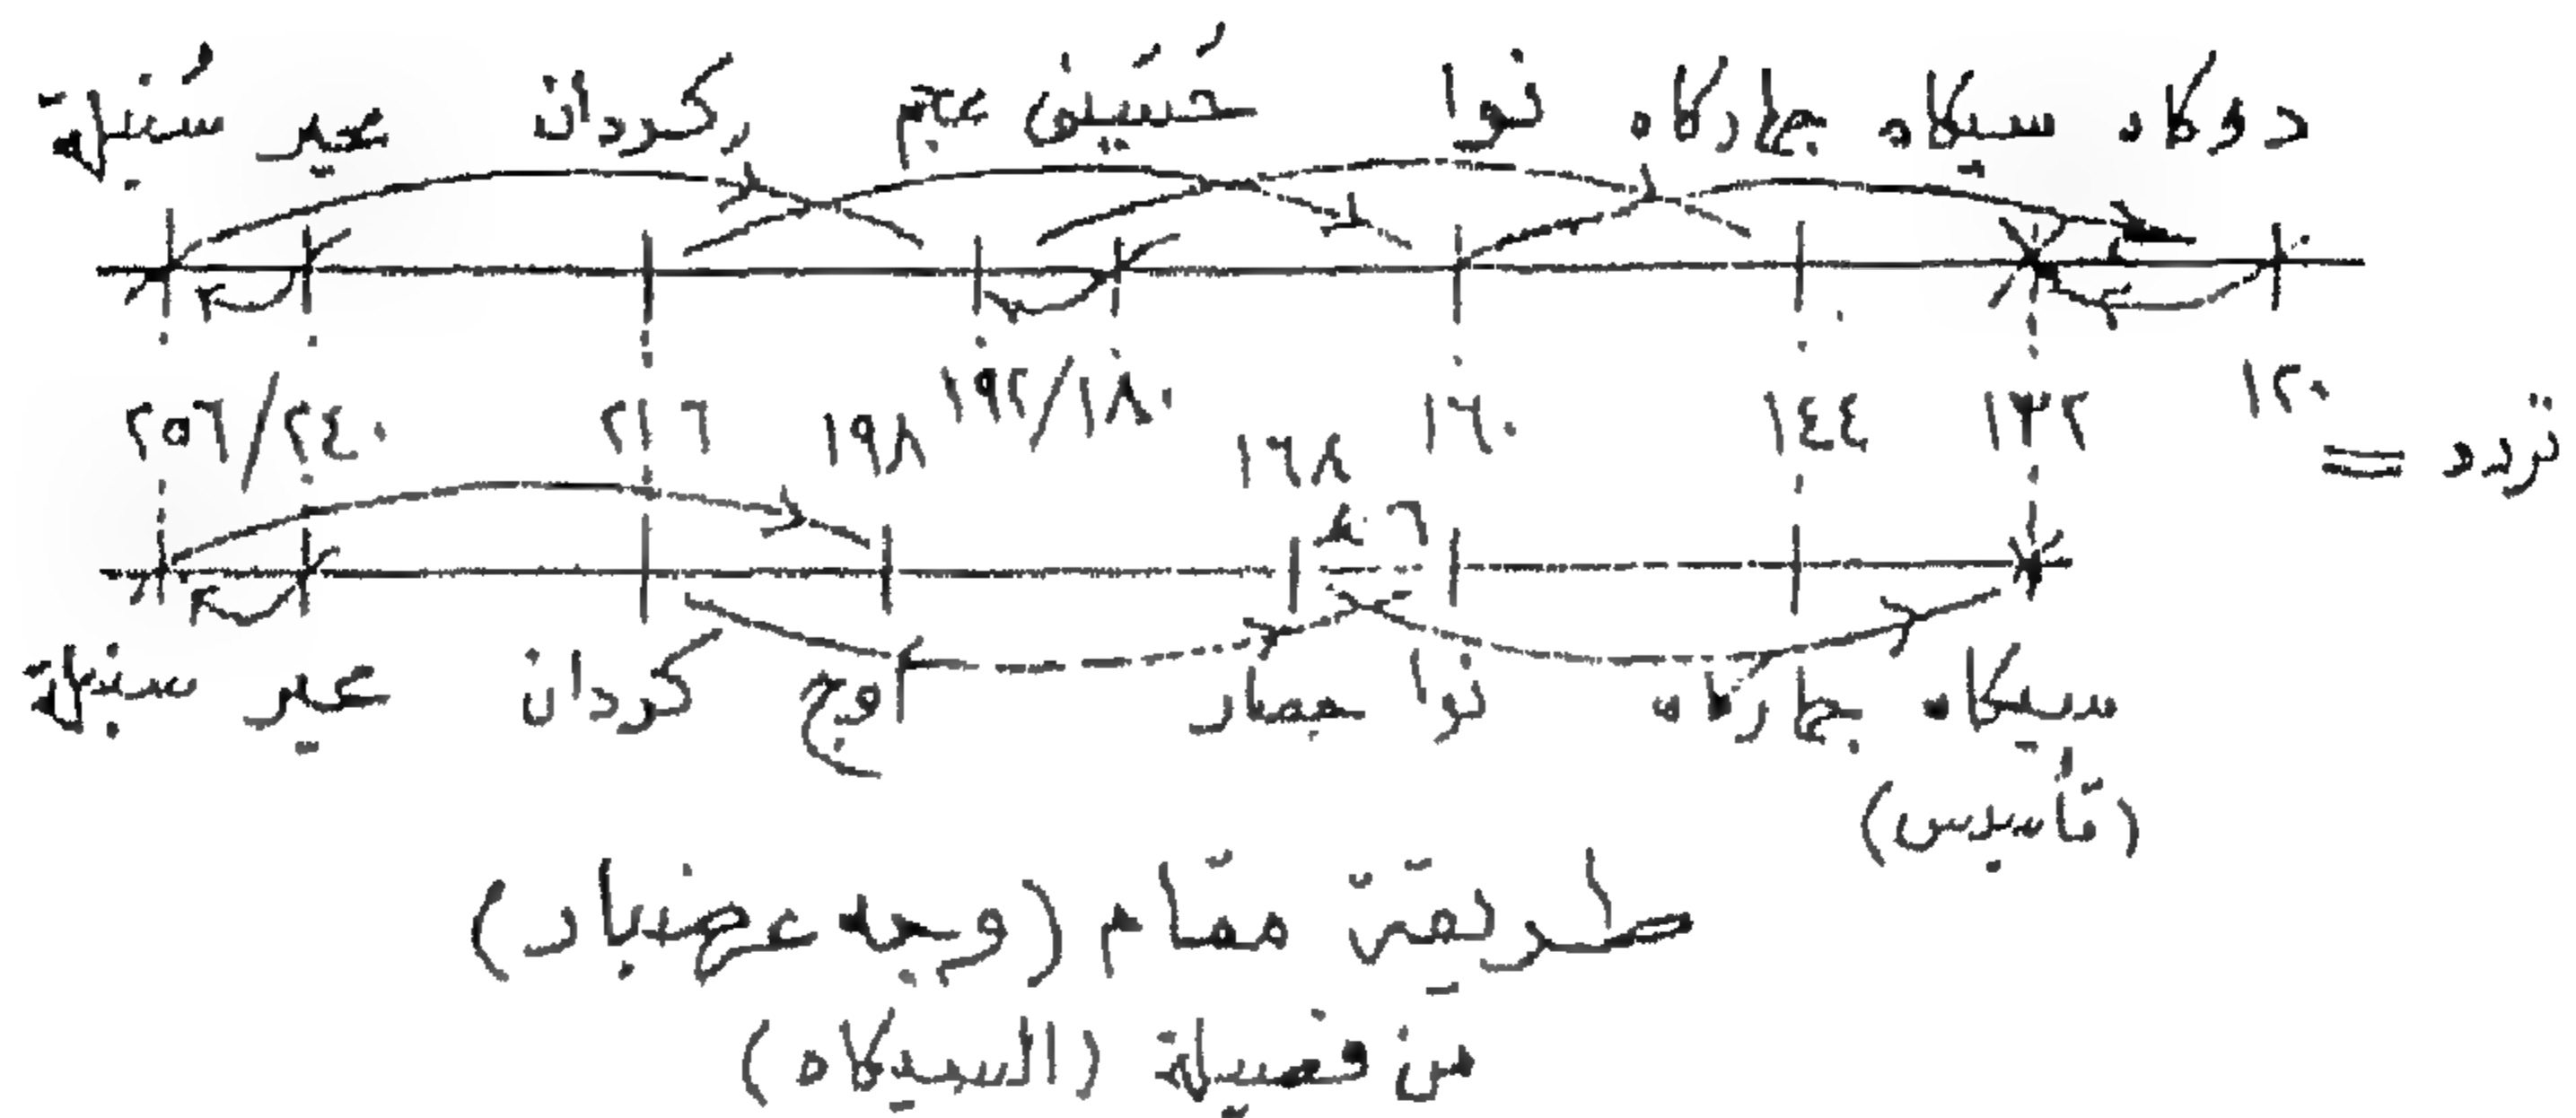 دوكاه سيكاه جهاركاه نوا حُسَيني عجم كردان محير سُنبلة
تردد = ١٢٠ ١٣٢ ١٤٤ ١٦٠ ١٨٠/١٩٢ ٢١٦ ٢٤٠/٢٥٦
١٦٨ ١٩٨
سيكاه جهاركاه نوا حصار اوج كردان محير سنبلة
(تأسيس)
طريقة مقام (وجه عرضبار)
من فصيلة (السيكاه)